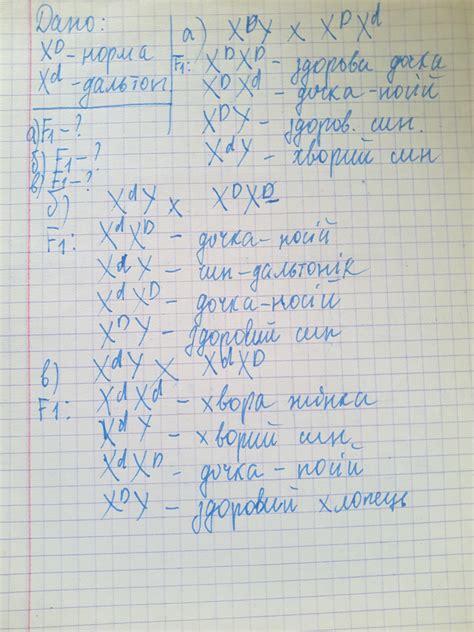 Дано:
X^D - норма
X^d - дальтон
а) F1 - ?
б) F1 - ?
в) F1 - ?
а) X^D Y x X^D X^d
F1: X^D X^D - здорова дочка
X^D X^d - дочка - носій
X^D Y - здоров. син.
X^d Y - хворий син
б) X^d Y x X^D X^D
F1: X^d X^D - дочка - носій
X^d Y - син - дальтонік
X^d X^D - дочка - носій
X^D Y - здоровий син
в) X^d Y x X^d X^D
F1: X^d X^d - хвора жінка
X^d Y - хворий син
X^d X^D - дочка - носій
X^D Y - здоровий хлопець